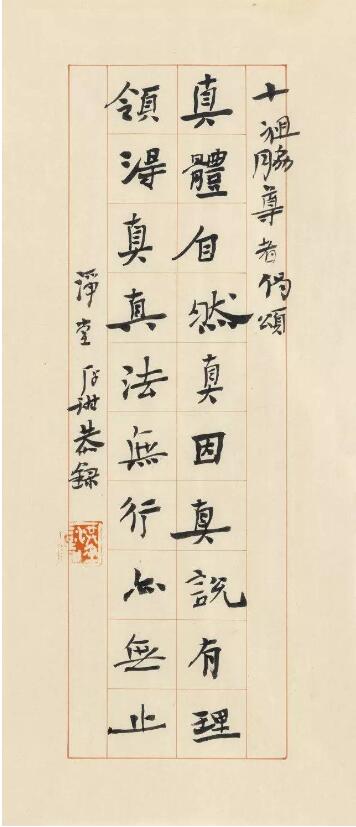 十祖脇尊者偈頌
真體自然真因真說有理
領得真真法無行亦無止
淨堂恭錄